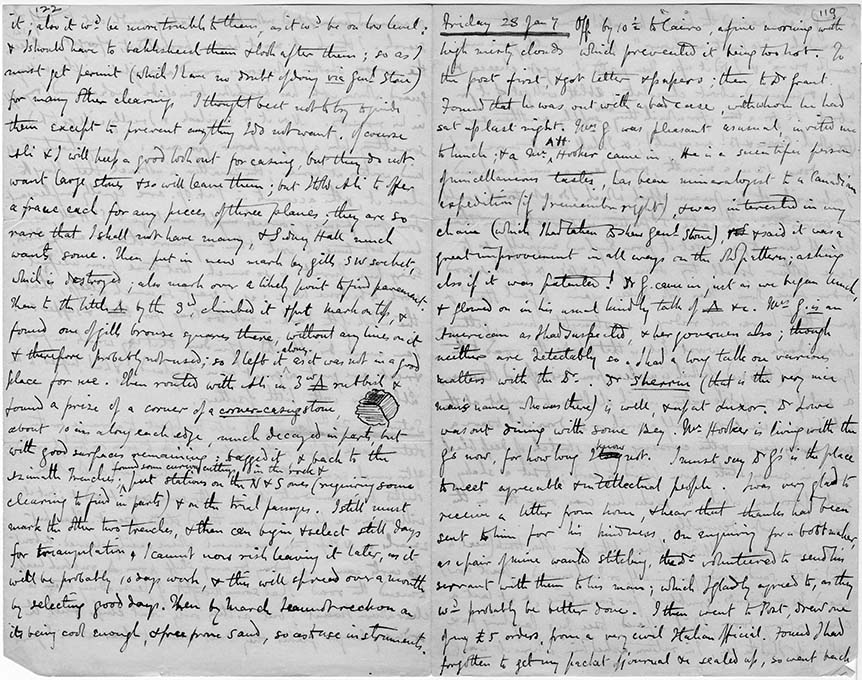 122
it; also it wd. be more trouble to them, as it wd. be on low level;
& I should have to bakhsheesh them & look after them; so as I
must get permit (which I have no doubt of doing via Genl. Stone)
for many other clearings I thought best not to try to
them except to prevent anything I do not want. Of course
Ali & I will keep a good look out for casing, but they do not
want large stones & so will leave them; but I told Ali to offer
a franc each for any pieces of three planes, they are so
rare that I shall not have many, & I dony Hall much
wants some. Then put in new mark by gills SW socket,
which is destroyed; also mark over a likely point to find pavement.
Then to the little Δ by the 3rd, climbed it & put mark atop, &
found one of gill bronze squares there, without any lines on it
& therefore probably not used; so I left it alone, as it was not in a good
place for me. Then routed with Ali in 3rd Δ rubbish &
found a prize of a corner of a corner-casing stone,
about 10 in along each edge, much decayed in parts but
with good surfaces remaining; bagged it & back to the
small trenches; found some curious cutting in the rock &
put stations on the N & S ones (requiring some
clearing to find in parts) & on the trial passages. I still must
mark the other two trenches, & then can begin & select still days
for triangulation & I cannot now risk leaving it later, as it
will be probably 10 days work, & this will spread over a month
by selecting good days. Then by March I can not reckon on
its being cool enough, & free from sand, so as to use instruments.
119
Friday 28 Jany Off by 10½ to Cairo, a fine morning with
high misty clouds which prevented it being too hot. To
the post first, & got letter & papers; then to Dr Grant.
Found that he was out with a bad case, with whom he had
sat up last night. Mrs G was pleasant as usual, invited me
to lunch; & a Mr. A.H. Hooker came in. He is a scientific person
of miscellaneous tastes, has been mineralogist to a Canadian
expedition (if I remember right), & was interested in my
chain (which I had taken to shew Genl. Stone), & said it was a
great improvement in all ways on the old pattern; asking
also if it was patented! Dr G. came in, just as we began lunch,
& flowed on in his usual kindly talk of Δ &c. Mrs G. is an
American as I had suspected, & her governess also; though
neither are detestably so. I had a long talk on various
matters with the Dr. Dr Sherrun (that is the very nice
mans name, who was there) is well, & up at Luxor. Dr Lowe
was out dining with some Bey. Mr Hooker is living with the
G's now, for how long I know not. I must say Dr G's is the place
to meet agreeable & intellectual people. I was very glad to
receive a letter from home, & hear that thanks had been
sent to him for his kindness. On enquiring for a bootmaker,
as a pair of mine wanted stitching, the Dr. volunteered to send his
servant with them to his man; which I gladly agreed to, as they
wd. probably be better done. I then went to Post, drew one
of my £5 orders, from a very civil Italian official. Found I had
forgotten to get my packet of journal &c sealed up, so went back